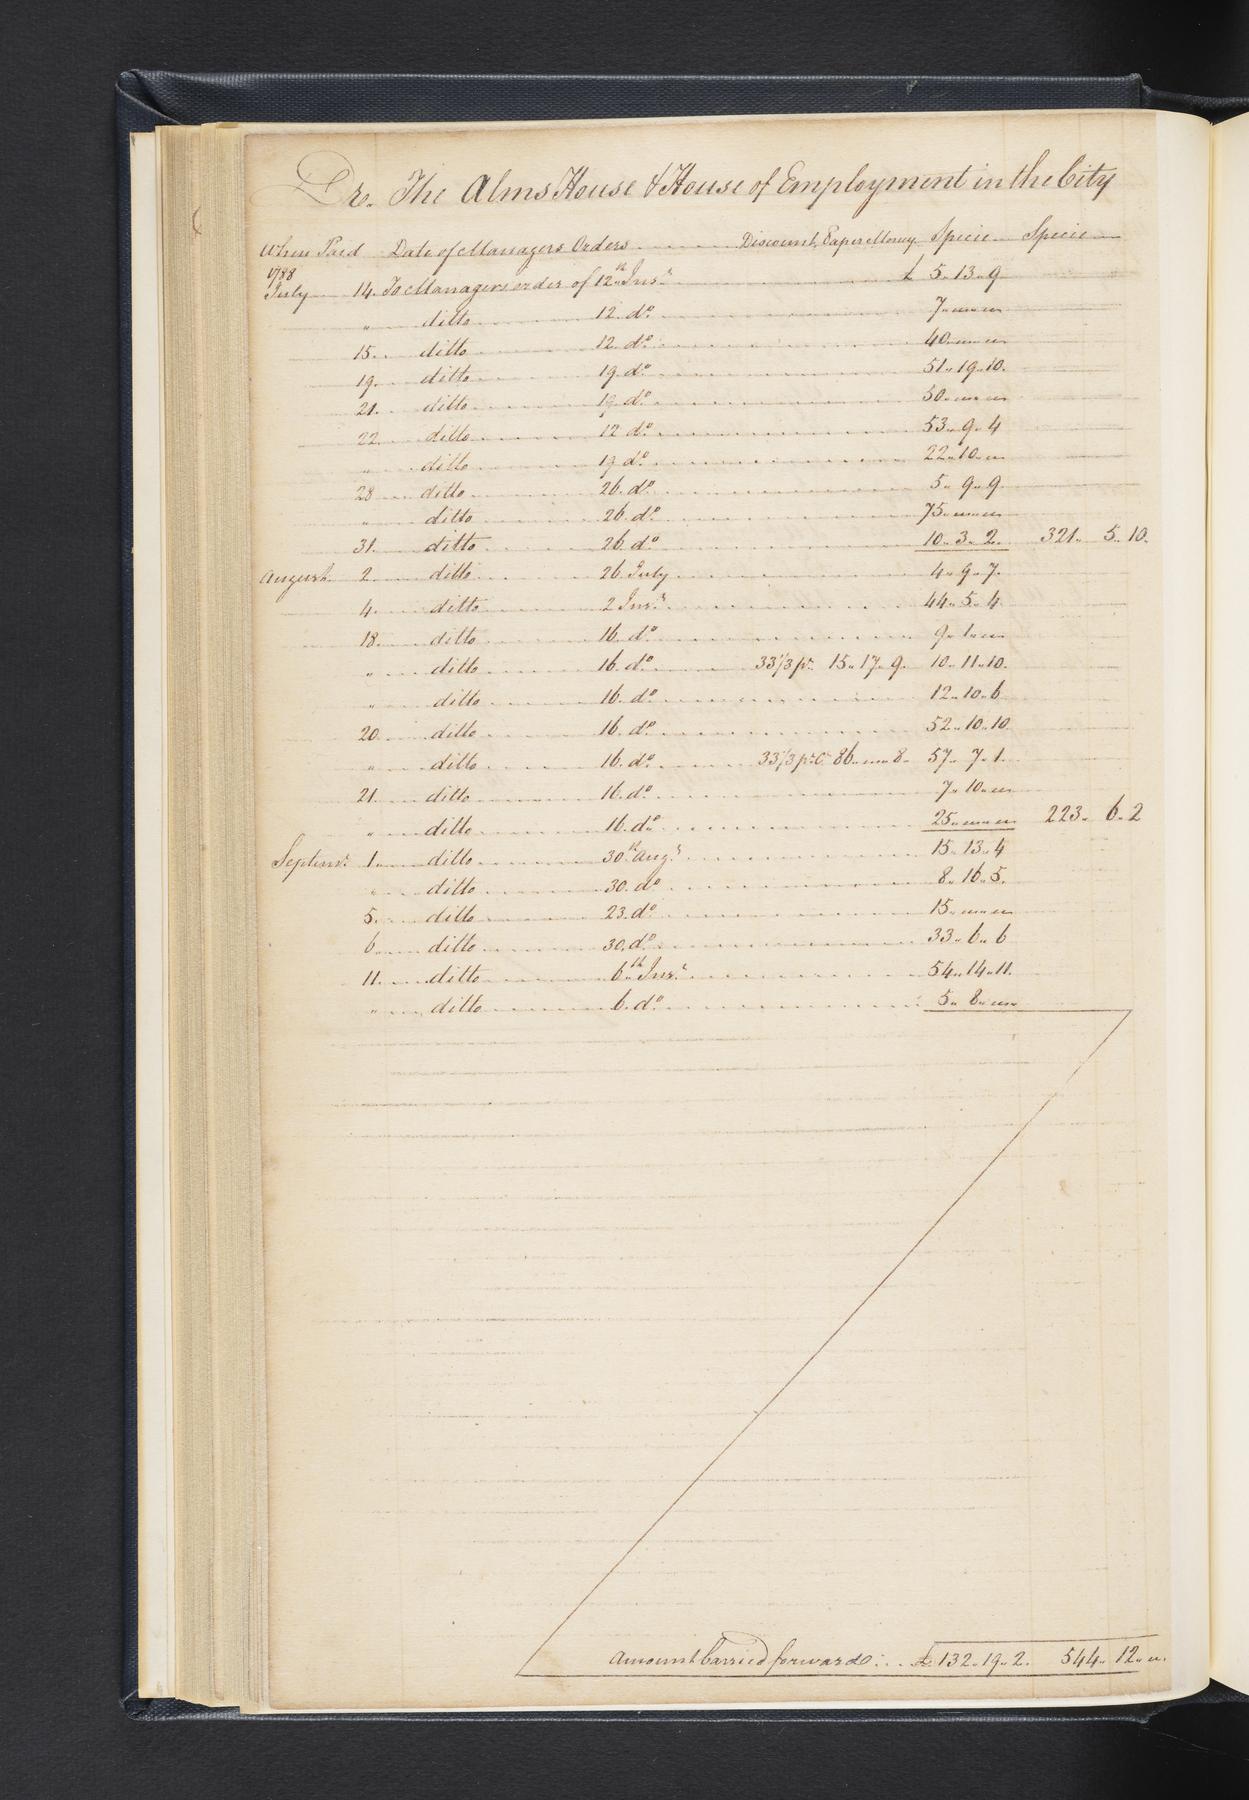 Dr. The Alms House & House of Employment in the City
When Paid Date of Managers Orders Discount, Paper Money Specie Specie
1788
July 14. To Managers order of 12th Inst. £ 5.. 13.. 9
" ditto 12. do. 7.. " .. "
15. ditto 12. do. 40.. " .. "
19. ditto 19. do. 51.. 19.. 10.
21. ditto 19. do. 50.. " .. "
22. ditto 12 do. 53.. 9.. 4
" ditto 19 do. 22.. 10.. "
28 ditto 26. do. 5.. 9.. 9
" ditto 26. do. 75.. " .. "
31. ditto 26. do. 10.. 3.. 2. 321.. 5.. 10.
August 2 ditto 26 July 4.. 9.. 7.
4. ditto 2 Inst. 44.. 5.. 4
18. ditto 16. do. 9.. 1.. "
" ditto 16. do. 33 1/3 pr. 15.. 17.. 9. 10.. 11.. 10.
" ditto 16. do. 12.. 10.. 6
20 ditto 16. do. 52.. 10.. 10
" ditto 16. do. 33 1/3 pr. Ct. 86.. " .. 8. 57.. 7.. 1.
21. ditto 16. do. 7.. 10.. "
" ditto 16. do. 25.. " .. " 223.. 6.. 2
Septemr. 1. ditto 30th Augt. 15.. 13.. 4
" ditto 30. do. 8.. 16.. 5.
5. ditto 23. do. 15.. " .. "
6. ditto 30. do. 33.. 6.. 6
11. ditto 6th Inst. 54.. 14.. 11.
" ditto 6. do. 5.. 8.. "
Amount Carried forward £ 132.. 19.. 2. 544.. 12.. "